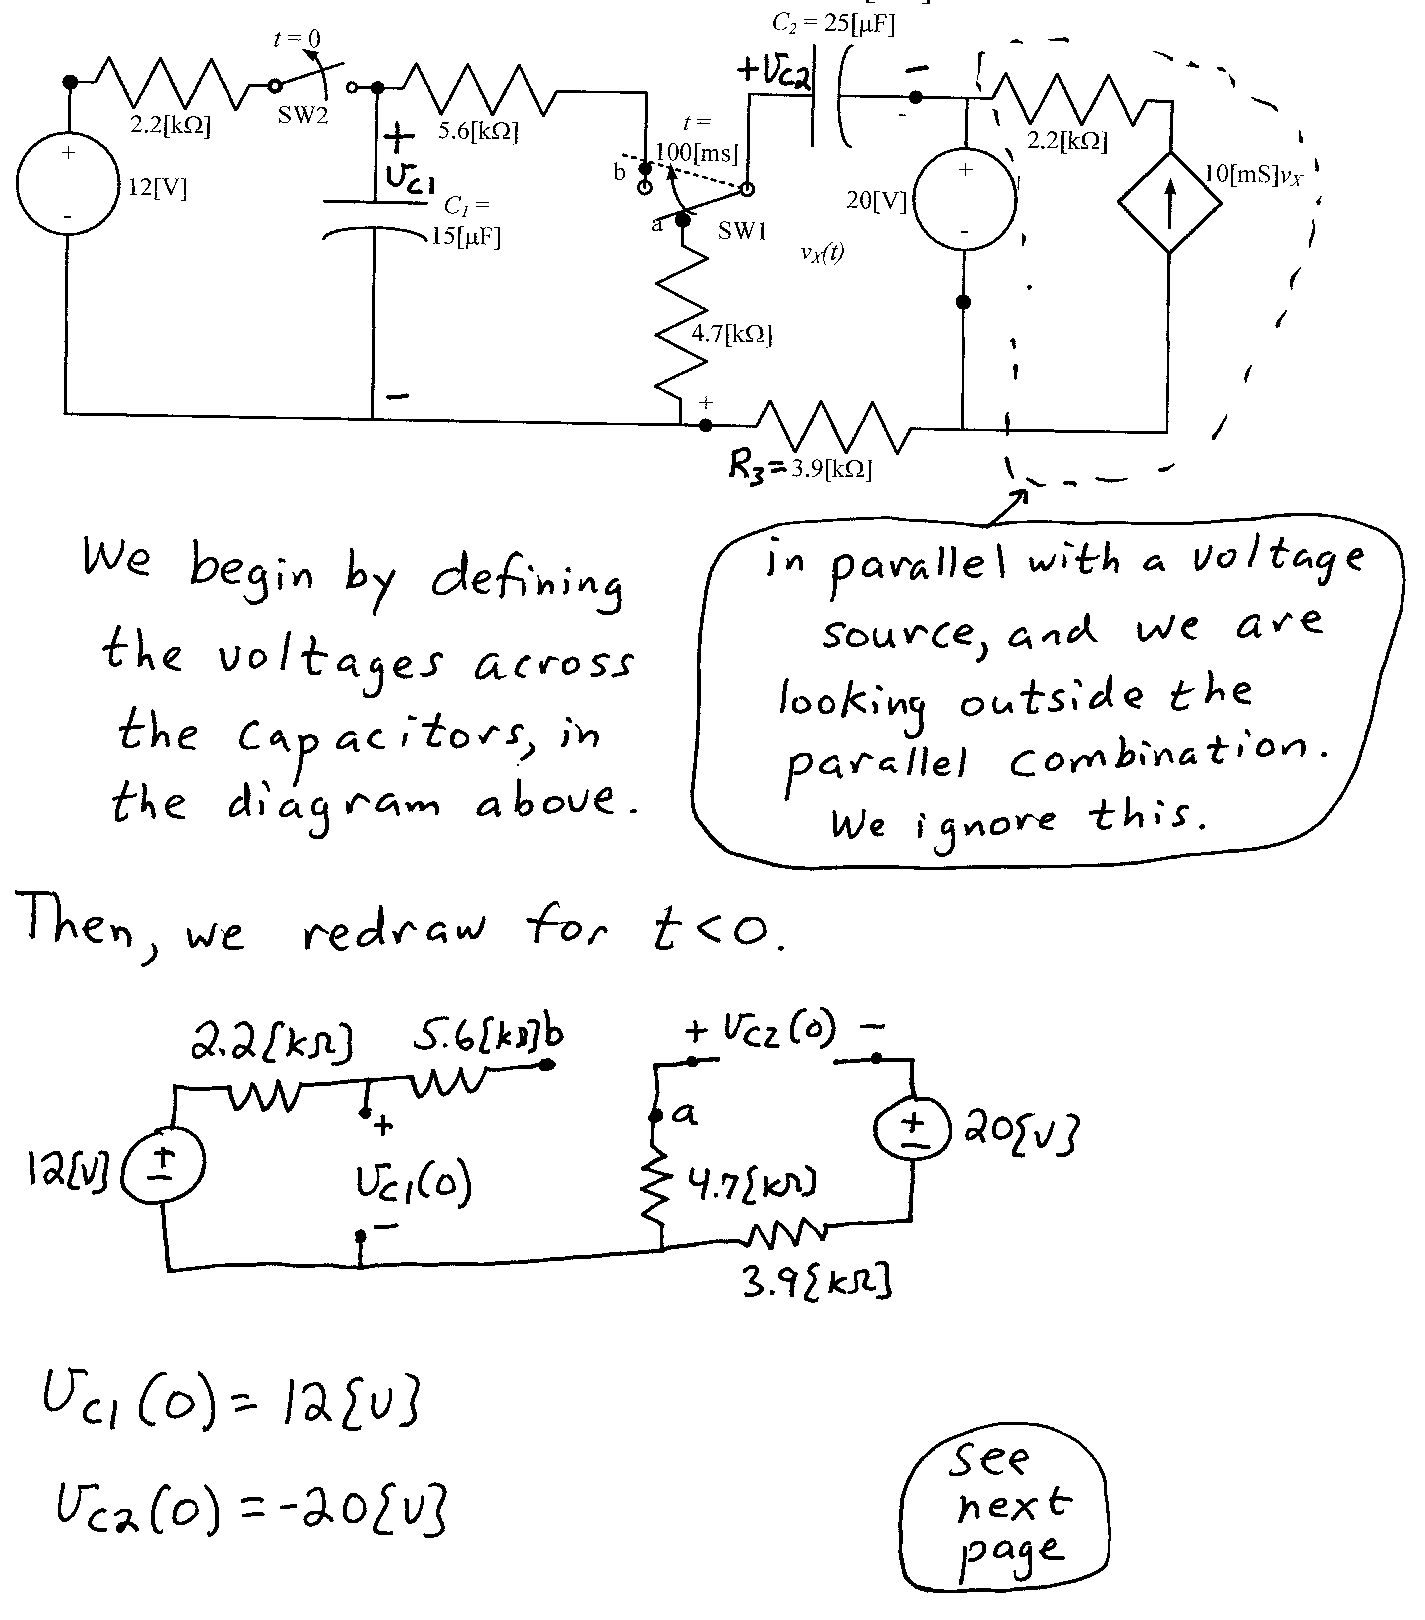 C₂ = 25[μF]
t = 0
+ vC2 -
2.2[kΩ]
SW2
5.6[kΩ]
t =
100[ms]
2.2[kΩ]
+
12[V]
-
+
vC1
-
C₁ =
15[μF]
b
a
SW1
vX(t)
+
20[V]
-
-
10[mS]vX
4.7[kΩ]
+
R₃ = 3.9[kΩ]
We begin by defining
the voltages across
the capacitors, in
the diagram above.
in parallel with a voltage
source, and we are
looking outside the
parallel combination.
We ignore this.
Then, we redraw for t<0.
2.2[kΩ] 5.6[kΩ] b + vC2(0) -
12[V] + - + vC1(0) - a 4.7[kΩ] + - 20[V]
3.9[kΩ]
vC1(0) = 12[V]
vC2(0) = -20[V]
see
next
page